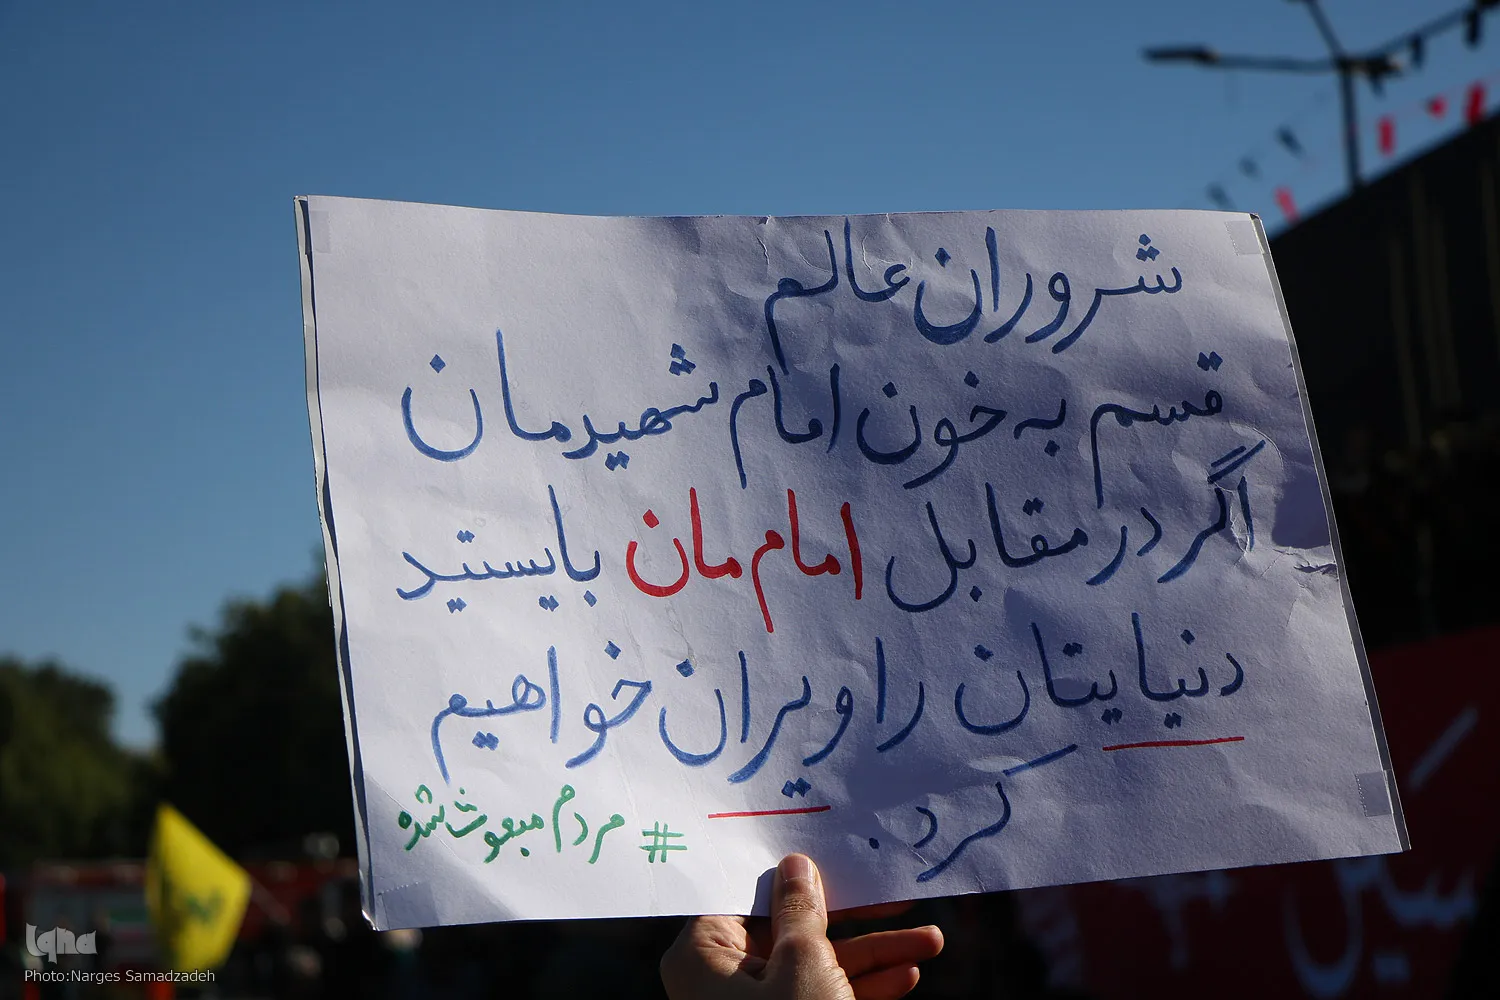 شروران عالم
قسم به خون امام شهیدمان
اگر در مقابل امام مان بایستید
دنیایتان را ویران خواهیم
کرد.
#مردم مبعوث شده
iqna
Photo:Narges Samadzadeh